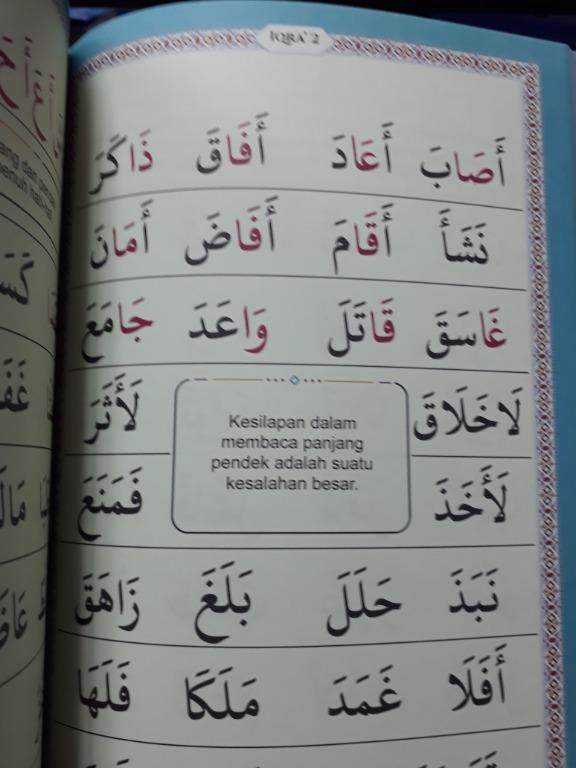 IQRA' 2
أَصَابَ أَعَادَ أَفَاقَ ذَاكَرَ
نَشَأَ أَقَامَ أَفَاضَ أَمَانَ
غَاسَقَ قَاتَلَ وَاعَدَ جَامَعَ
لَاخَلَاقَ لَأَثَرَ
Kesilapan dalam
membaca panjang
pendek adalah suatu
kesalahan besar.
لَأَخَذَ فَمَنَعَ
نَبَذَ حَلَلَ بَلَغَ زَاهَقَ
أَفَلَا غَمَدَ مَلَكَا فَلَهَا